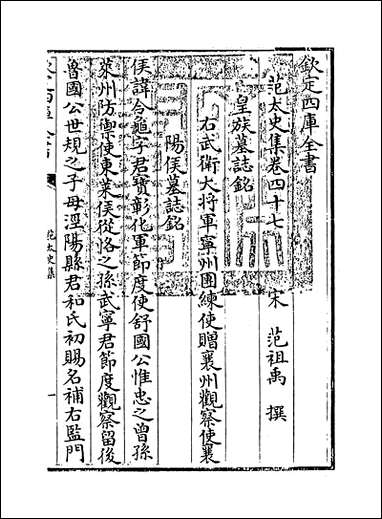 欽定四庫全書
范太史集卷四十七　宋　范祖禹　撰
皇族墓誌銘
右武衛大將軍寧州團練使贈襄州觀察使襄
陽侯墓誌銘
侯諱令𬨎字君寶彰化軍節度使舒國公惟忠之曾孫
萊州防禦使東萊侯從恪之孫武寧君節度觀察留後
魯國公世規之子母涇陽縣君和氏初賜名補右監門
范太史集
一